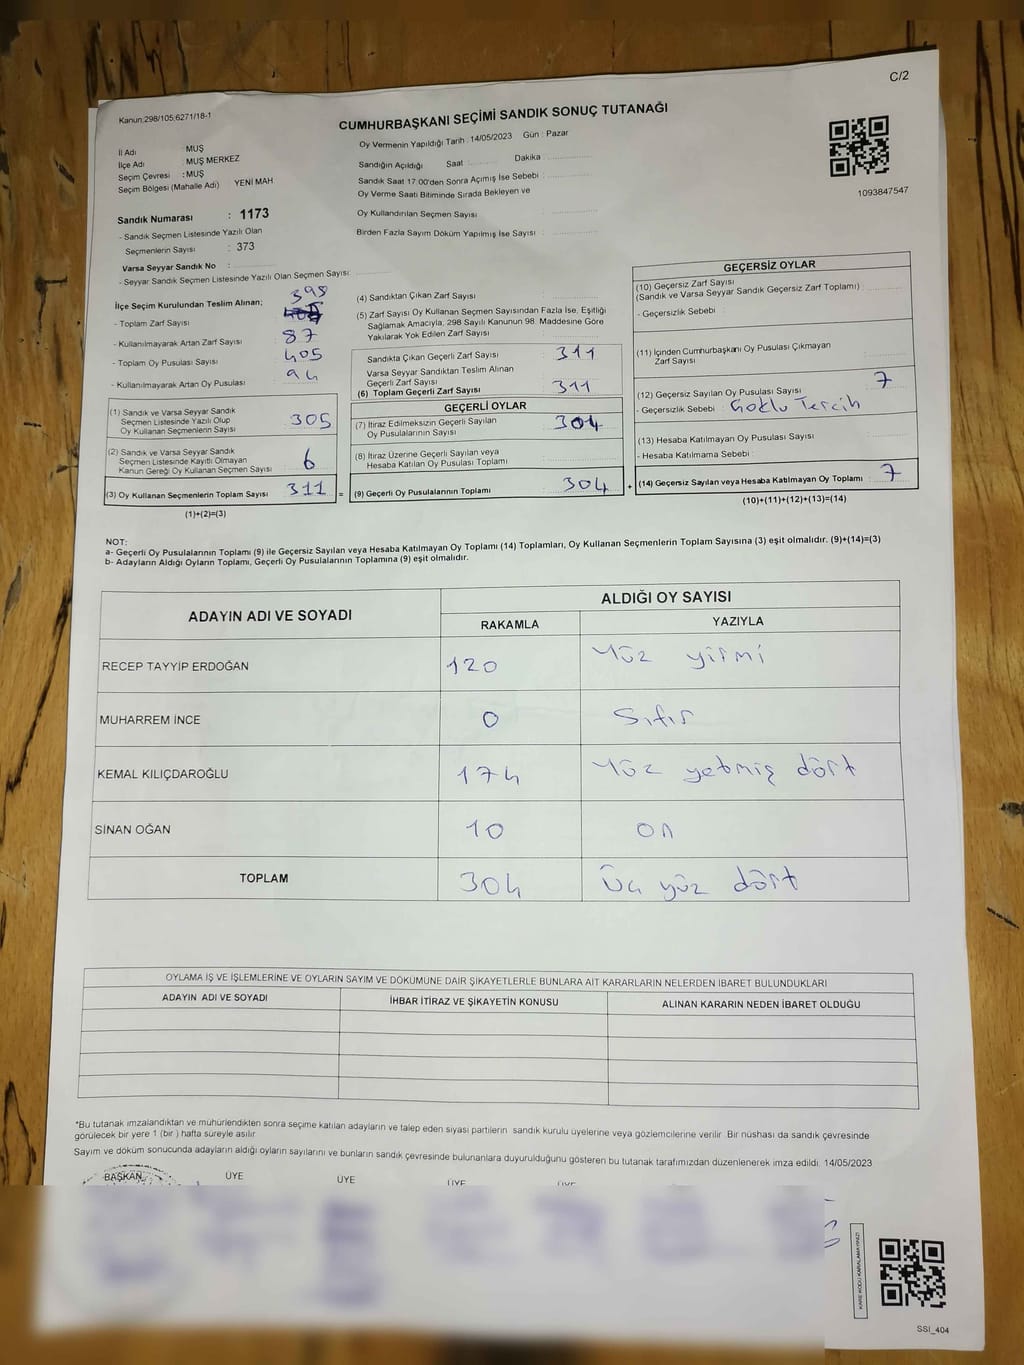 C/2
Kanun:298/105;6271/18-1
CUMHURBAŞKANI SEÇİMİ SANDIK SONUÇ TUTANAĞI
İl Adı : MUŞ
İlçe Adı : MUŞ MERKEZ
Seçim Çevresi : MUŞ
Seçim Bölgesi (Mahalle Adı) YENİ MAH
Oy Vermenin Yapıldığı Tarih : 14/05/2023 Gün : Pazar
Sandığın Açıldığı Saat Dakika
Sandık Saat 17:00'den Sonra Açımış İse Sebebi :
Oy Verme Saati Bitiminde Sırada Bekleyen ve
Oy Kullandırılan Seçmen Sayısı :
Birden Fazla Sayım Döküm Yapılmış İse Sayısı :
1093847547
Sandık Numarası : 1173
- Sandık Seçmen Listesinde Yazılı Olan
Seçmenlerin Sayısı : 373
Varsa Seyyar Sandık No :
- Seyyar Sandık Seçmen Listesinde Yazılı Olan Seçmen Sayısı:
İlçe Seçim Kurulundan Teslim Alınan;
- Toplam Zarf Sayısı 398
- Kullanılmayarak Artan Zarf Sayısı 87
- Toplam Oy Pusulası Sayısı 405
- Kullanılmayarak Artan Oy Pusulası 94
(1) Sandık ve Varsa Seyyar Sandık
Seçmen Listesinde Yazılı Olup
Oy Kullanan Seçmenlerin Sayısı 305
(2) Sandık ve Varsa Seyyar Sandık
Seçmen Listesinde Kayıtlı Olmayan
Kanun Gereği Oy Kullanan Seçmen Sayısı 6
(3) Oy Kullanan Seçmenlerin Toplam Sayısı 311 =
(1)+(2)=(3)
(4) Sandıktan Çıkan Zarf Sayısı :
(5) Zarf Sayısı Oy Kullanan Seçmen Sayısından Fazla İse, Eşitliği
Sağlamak Amacıyla, 298 Sayılı Kanunun 98. Maddesine Göre
Yakılarak Yok Edilen Zarf Sayısı
Sandıkta Çıkan Geçerli Zarf Sayısı : 311
Varsa Seyyar Sandıktan Teslim Alınan
Geçerli Zarf Sayısı
(6) Toplam Geçerli Zarf Sayısı : 311
GEÇERLİ OYLAR
(7) İtiraz Edilmeksizin Geçerli Sayılan
Oy Pusulalarının Sayısı : 304
(8) İtiraz Üzerine Geçerli Sayılan veya
Hesaba Katılan Oy Pusulası Toplamı
(9) Geçerli Oy Pusulalarının Toplamı 304 +
GEÇERSİZ OYLAR
(10) Geçersiz Zarf Sayısı
(Sandık ve Varsa Seyyar Sandık Geçersiz Zarf Toplamı) :
- Geçersizlik Sebebi :
(11) İçinden Cumhurbaşkanı Oy Pusulası Çıkmayan
Zarf Sayısı
(12) Geçersiz Sayılan Oy Pusulası Sayısı 7
- Geçersizlik Sebebi : Çoklu Tercih
(13) Hesaba Katılmayan Oy Pusulası Sayısı
- Hesaba Katılmama Sebebi :
(14) Geçersiz Sayılan veya Hesaba Katılmayan Oy Toplamı : 7
(10)+(11)+(12)+(13)=(14)
NOT:
a- Geçerli Oy Pusulalarının Toplamı (9) ile Geçersiz Sayılan veya Hesaba Katılmayan Oy Toplamı (14) Toplamları, Oy Kullanan Seçmenlerin Toplam Sayısına (3) eşit olmalıdır. (9)+(14)=(3)
b- Adayların Aldığı Oyların Toplamı, Geçerli Oy Pusulalarının Toplamına (9) eşit olmalıdır.
ADAYIN ADI VE SOYADI ALDIĞI OY SAYISI
RAKAMLA YAZIYLA
RECEP TAYYİP ERDOĞAN 120 Yüz yirmi
MUHARREM İNCE 0 Sıfır
KEMAL KILIÇDAROĞLU 174 Yüz yetmiş dört
SİNAN OĞAN 10 on
TOPLAM 304 Üç yüz dört
OYLAMA İŞ VE İŞLEMLERİNE VE OYLARIN SAYIM VE DÖKÜMÜNE DAİR ŞİKAYETLERLE BUNLARA AİT KARARLARIN NELERDEN İBARET BULUNDUKLARI
ADAYIN ADI VE SOYADI İHBAR İTİRAZ VE ŞİKAYETİN KONUSU ALINAN KARARIN NEDEN İBARET OLDUĞU
*Bu tutanak imzalandıktan ve mühürlendikten sonra seçime katılan adayların ve talep eden siyasi partilerin sandık kurulu üyelerine veya gözlemcilerine verilir. Bir nüshası da sandık çevresinde
görülecek bir yere 1 (bir ) hafta süreyle asılır
Sayım ve döküm sonucunda adayların aldığı oyların sayılarını ve bunların sandık çevresinde bulunanlara duyurulduğunu gösteren bu tutanak tarafımızdan düzenlenerek imza edildi. 14/05/2023
BAŞKAN ÜYE ÜYE ÜYE ÜYE
KARE KODU KARALAMAYINIZ!
SSI_404